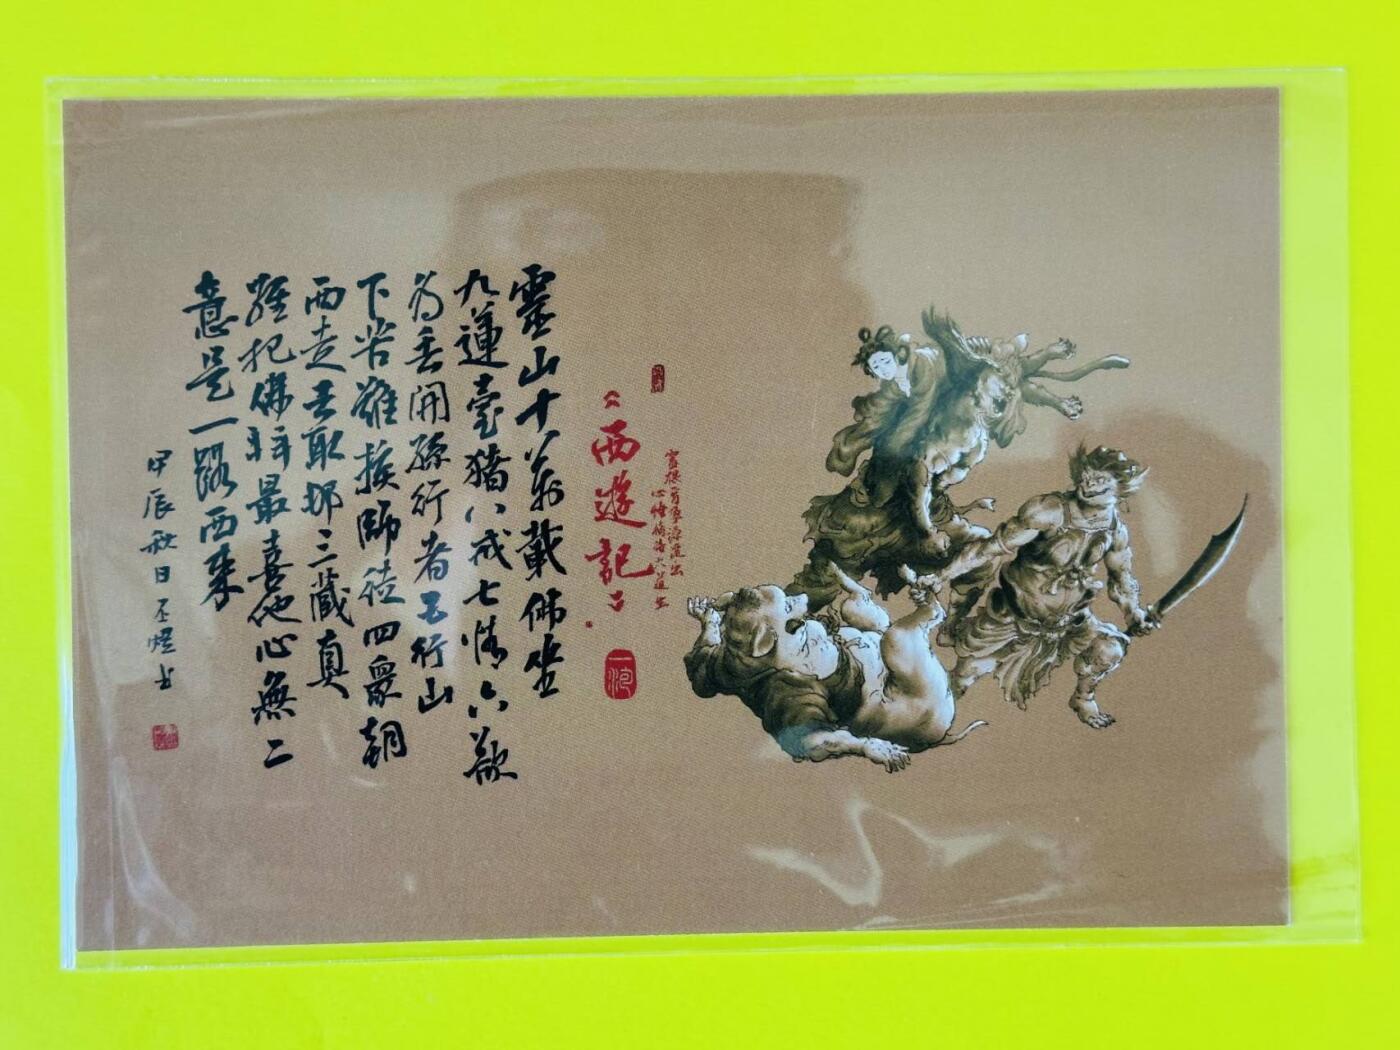 靈根育孕源流出
心性修持大道生
《西遊記》
靈山十萬載佛坐
九蓮臺豬八戒七情六欲
為丟開孫行者五行山
下苦難挨師徒四眾朝
西走去取那三藏真
經把佛拜最喜他心無二
意是一路西來
甲辰秋日